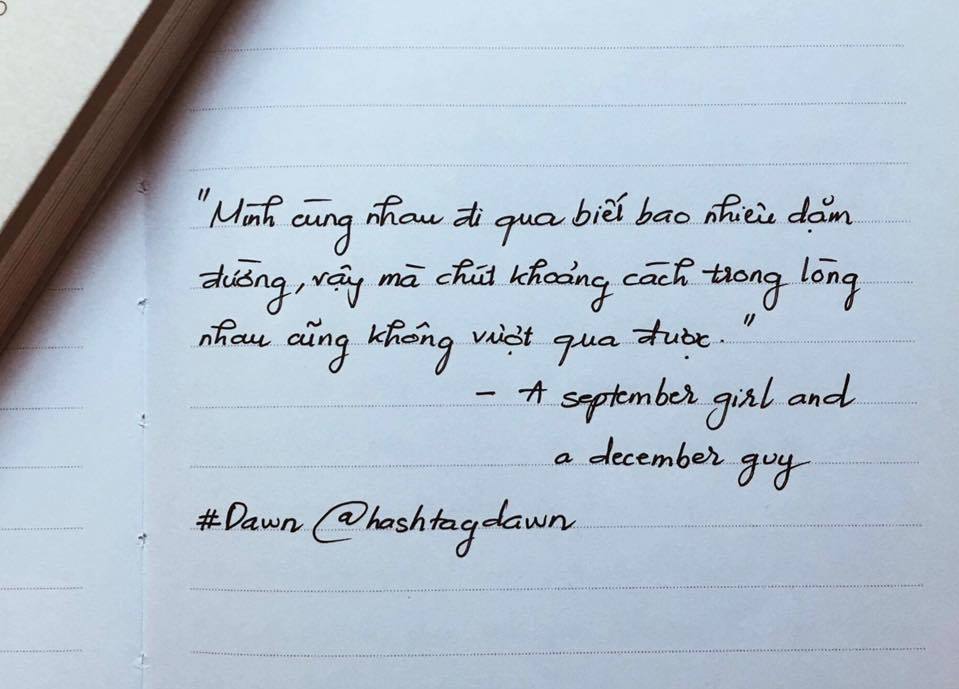 "Mình cùng nhau đi qua biết bao nhiêu dặm
đường, vậy mà chút khoảng cách trong lòng
nhau cũng không vượt qua được."
- A september girl and
a december guy
#Dawn @hashtagdawn